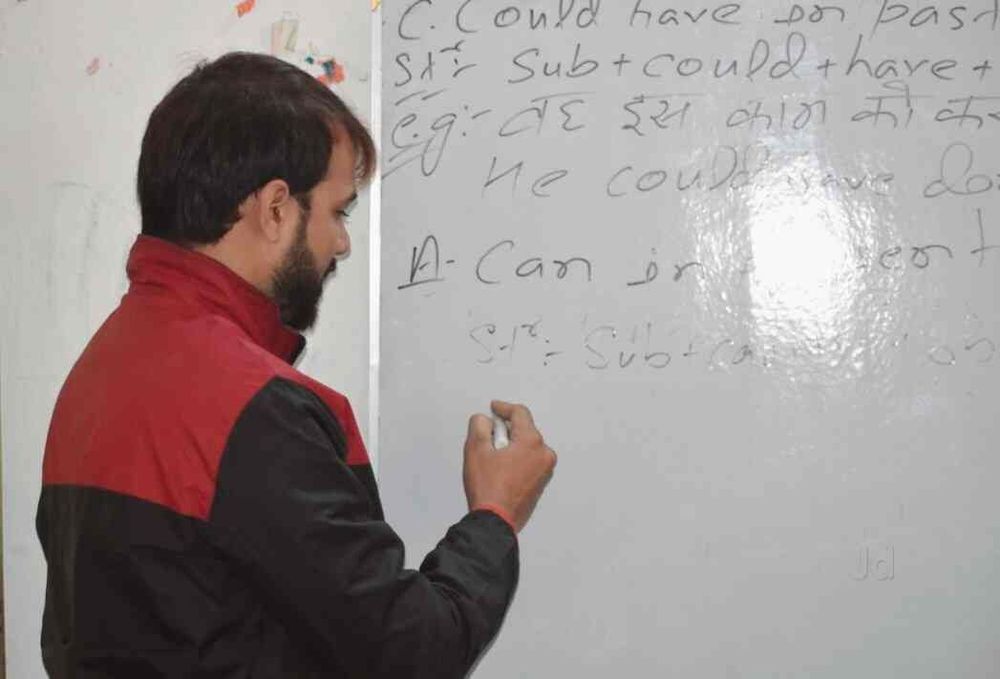 C. Could have in past
Str:- Sub + could + have +
e.g:- वह इस काम को
He could have do
A- Can in
Str:- Sub +
Jd